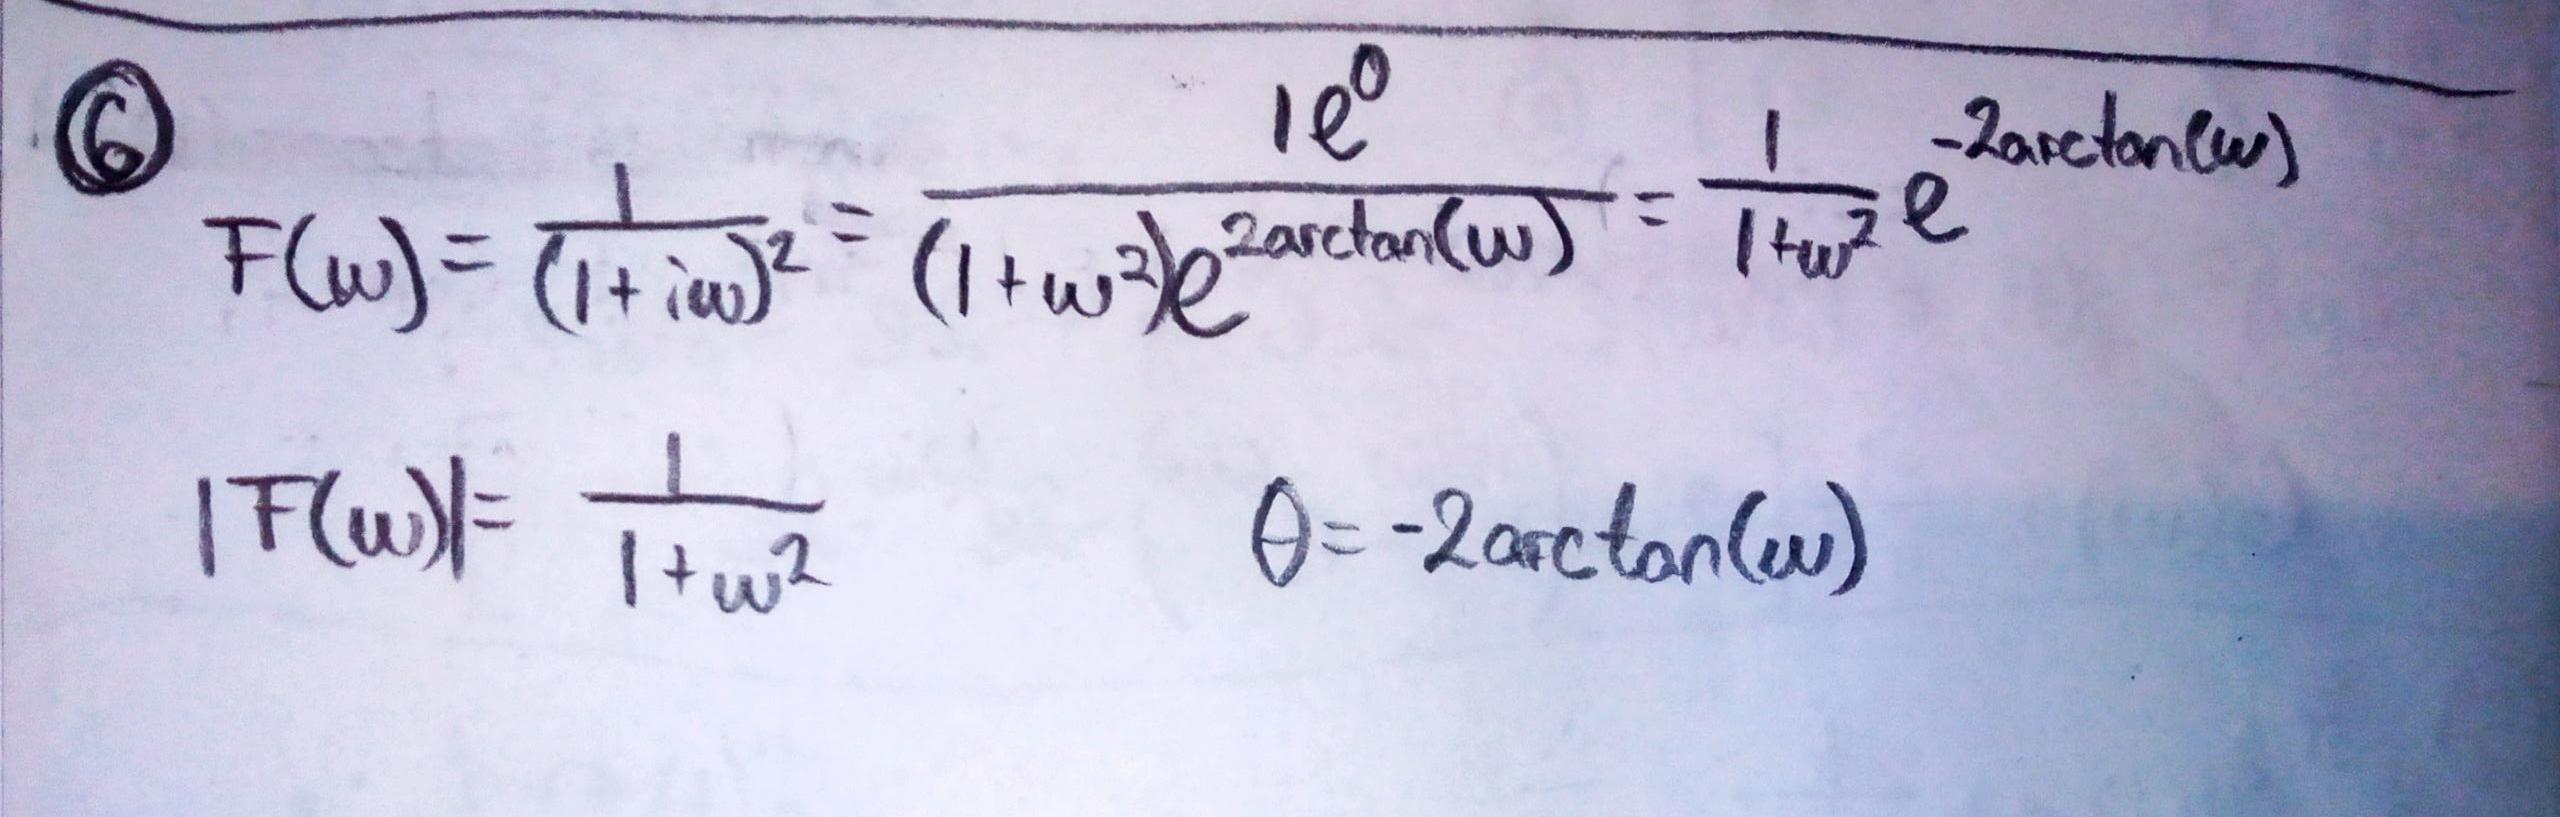 ⑥
F(ω) = 1/(1+iω)² = 1e⁰/((1+ω²)e^(2arctan(ω))) = 1/(1+ω²) e^(-2arctan(ω))
|F(ω)| = 1/(1+ω²) θ = -2arctan(ω)